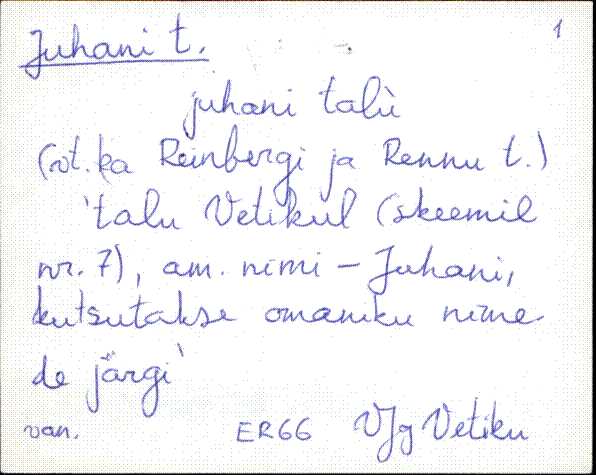 Juhani t.
1
juhani talù
(vt. ka Reinbergi ja Rennu t.)
'talu Vetikul (skeemil
nr. 7), am. nimi – Juhani,
kutsutakse omaniku nime-
de järgi'
van. ER66 VJg Vetiku